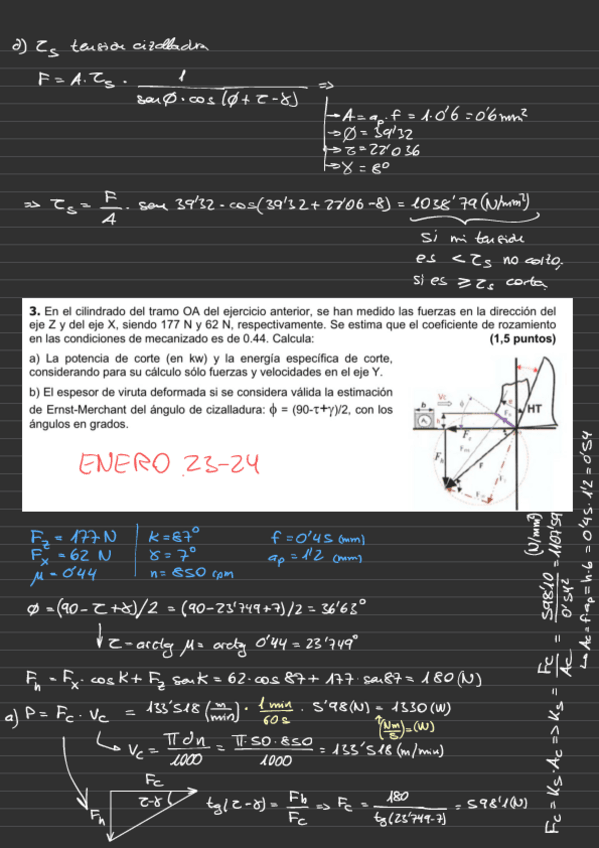 d) τs tensión cizalladura
F = A·τs · 1 / (sen ø · cos (ø + τ - γ)) =>
→ A = ap · f = 1·0'6 = 0'6 mm²
→ ø = 39'32
→ τ = 22'036
→ γ = 8°
=> τs = F/A · sen 39'32 · cos(39'32 + 22'06 - 8) = 1038'79 (N/mm²)
si mi tensión
es < τs no corto,
si es ≥ τs corta
3. En el cilindrado del tramo OA del ejercicio anterior, se han medido las fuerzas en la dirección del
eje Z y del eje X, siendo 177 N y 62 N, respectivamente. Se estima que el coeficiente de rozamiento
en las condiciones de mecanizado es de 0.44. Calcula: (1,5 puntos)
a) La potencia de corte (en kw) y la energía específica de corte,
considerando para su cálculo sólo fuerzas y velocidades en el eje Y.
b) El espesor de viruta deformada si se considera válida la estimación
de Ernst-Merchant del ángulo de cizalladura: ϕ = (90-τ+γ)/2, con los
ángulos en grados.
Vc
b
h
Ac
ϕ
HT
Fc
Fh
F
ENERO 23-24
Fz = 177 N K = 87° f = 0'45 (mm)
Fx = 62 N γ = 7° ap = 1'2 (mm)
μ = 0'44 n = 850 rpm
ø = (90 - τ + γ)/2 = (90 - 23'749 + 7)/2 = 36'63°
↳ τ - arctg μ = arctg 0'44 = 23'749°
Fh = Fx · cos K + Fz sen K = 62 · cos 87 + 177 · sen 87 = 180 (N)
a) P = Fc · Vc = 133'518 (m/min) · 1 min/60 s · 5'98 (N) = 1330 (W)
(Nm/s) = (W)
↳ Vc = π d n / 1000 = π · 50 · 850 / 1000 = 133'518 (m/min)
Fc
Fh
τ-γ
tg (τ - γ) = Fh/Fc => Fc = 180 / tg (23'749-7) = 598'1 (N)
Fc = Ks · Ac => Ks = Fc/Ac = 598'10 / 0'54² = 1107'59 (N/mm²)
↳ Ac = f·ap = h·b = 0'45 · 1'2 = 0'54